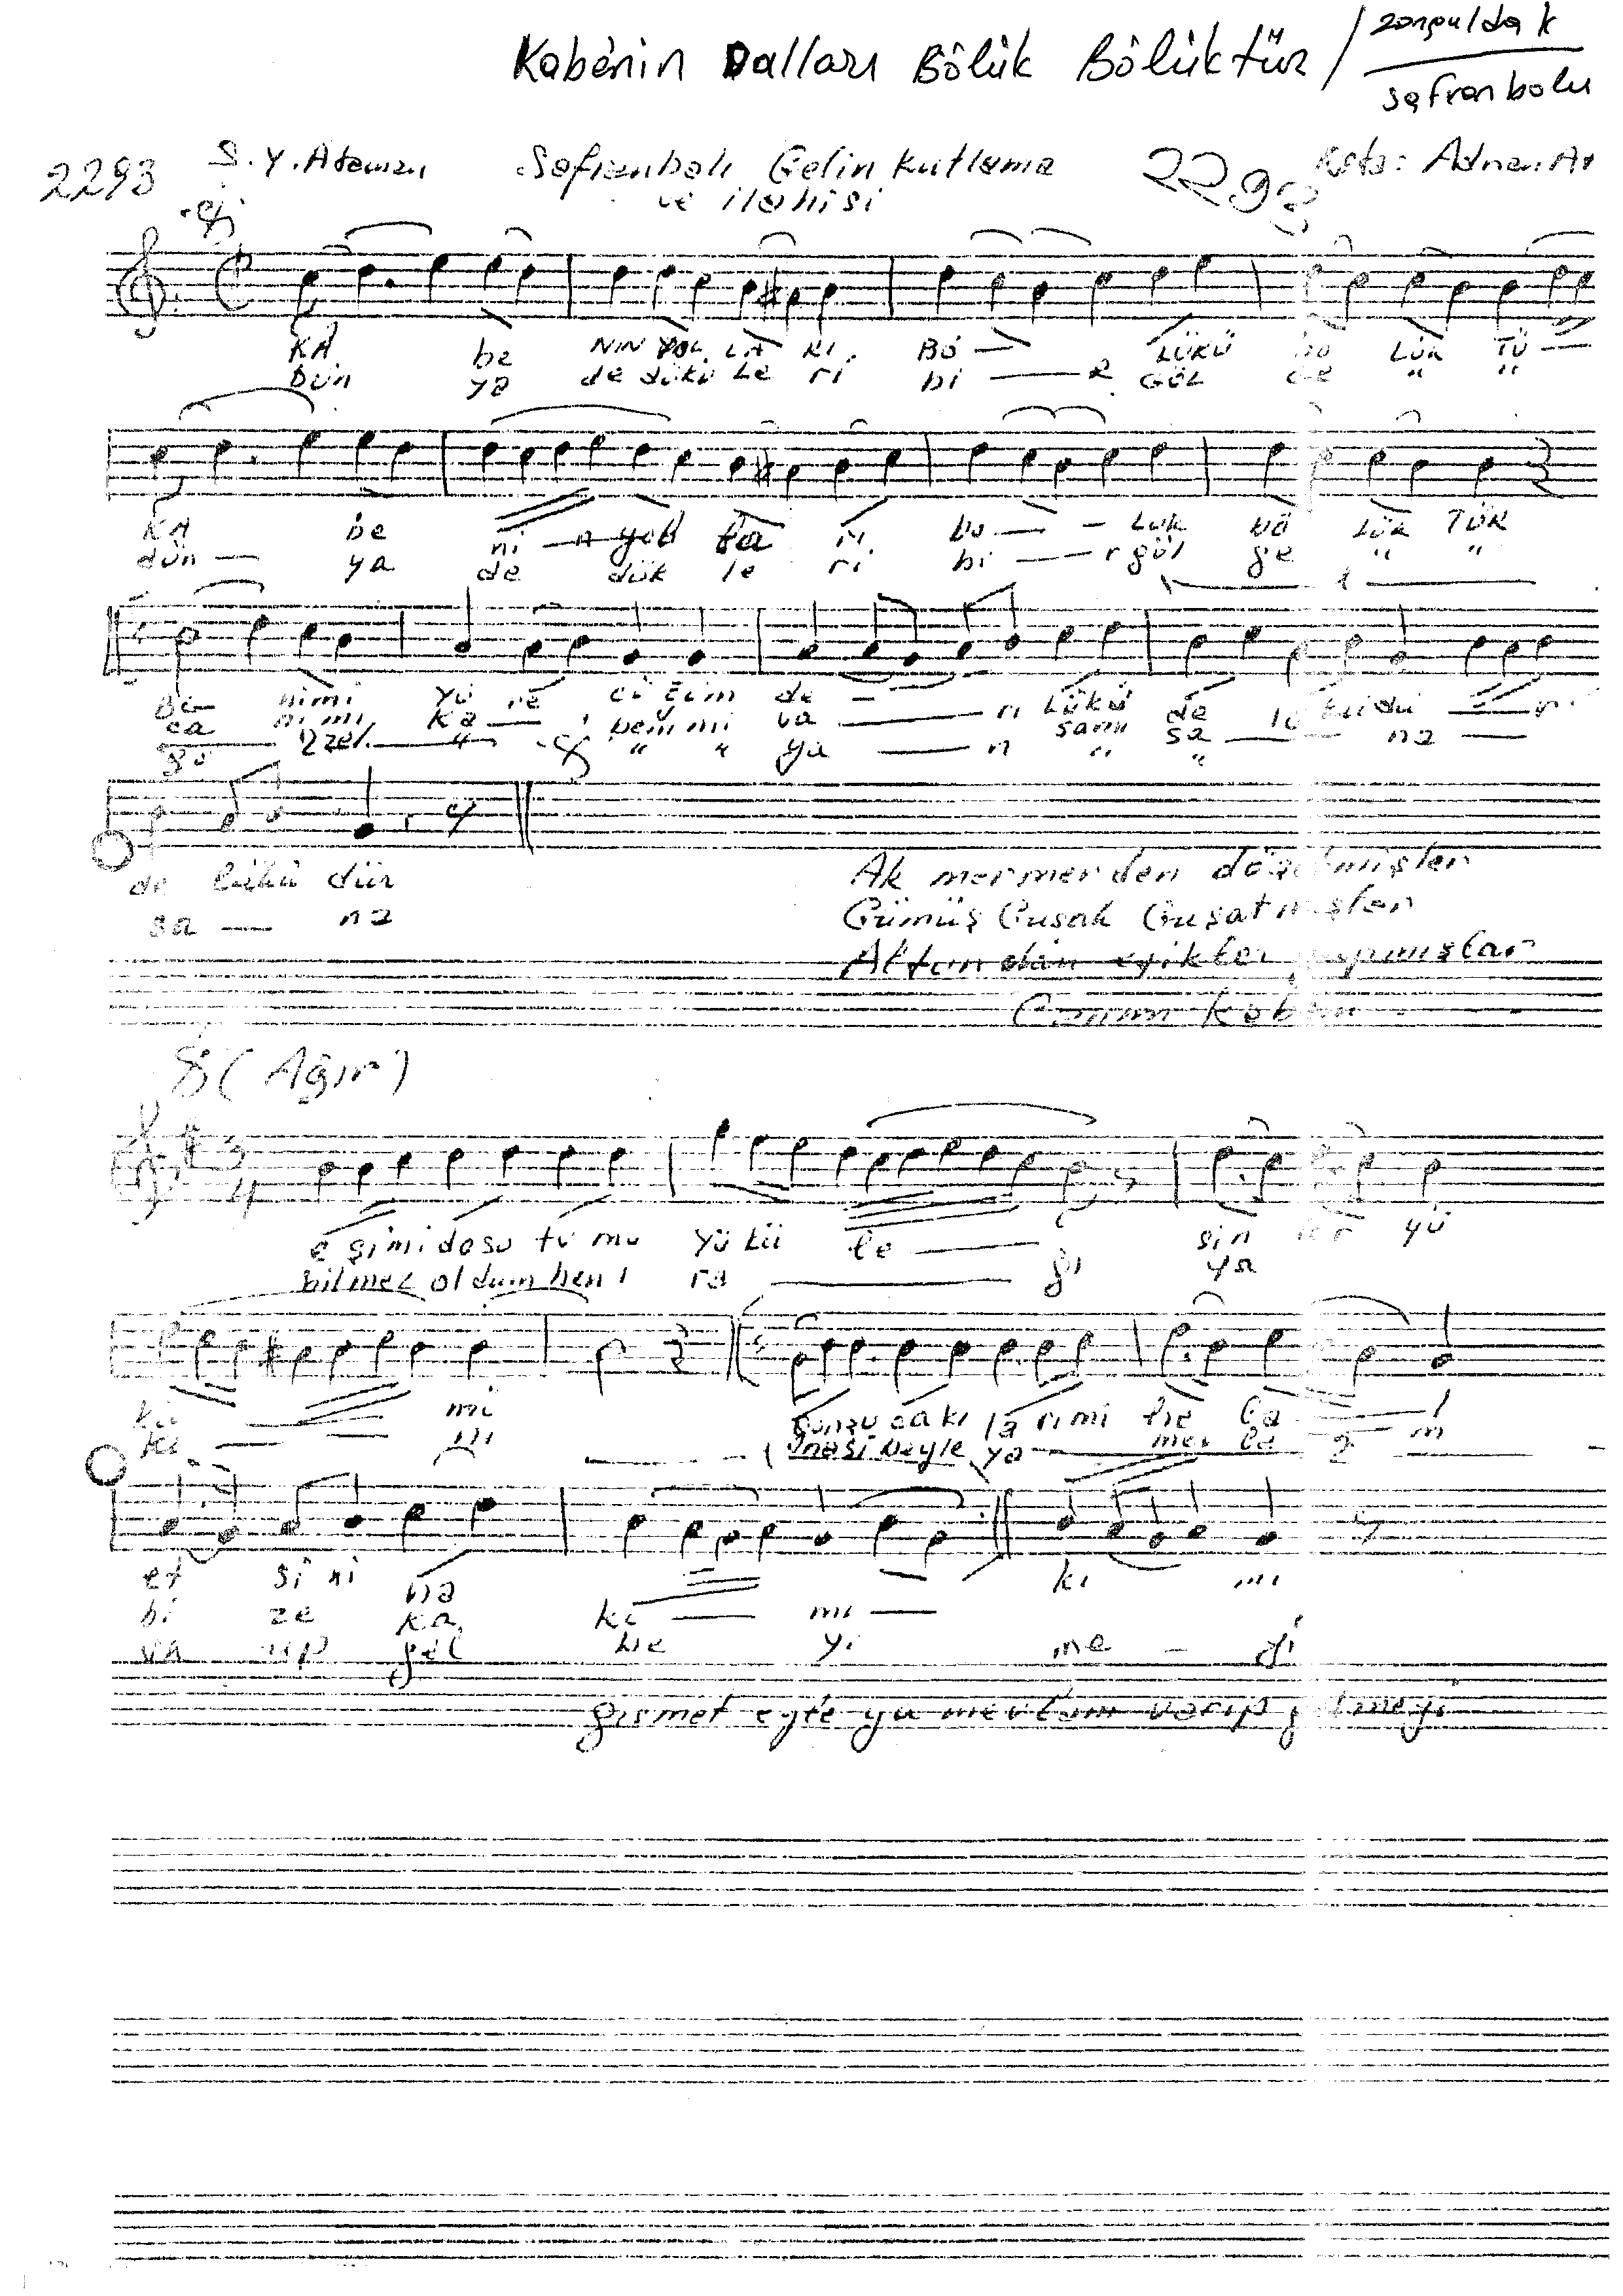 Kabenin Dalları Bölük Bölüktür / zonguldak
safranbolu
2293 S. Y. Ataman Safranbolu Gelin Kutlama 2293 Nota: Adnan At
ve ilahisi
KA be NIN YOL LA RI BÖ — LÜKÜ bö LÜK TÜ —
DÜN ya de dükü Le ri bi — R GÖL GE " "
KA be ni — n yol la rı bö — — Lük bö LÜK TÜR
dün — ya de dük le ri bi — r göl ge " "
1
Be nimi yü re ci ğim de — ri Lükü de lü küdü — r
ca nımı Ka — bem mi va — rı sam sa — na —
gö üzel " " " ya — n " "
de lükü dür
sa — na
Ak mermerden döşetmişler
Gümüş Guşak Guşatmışlar
Altundan eşikler yapmışlar
Canım Kabem
(Ağır)
e şimi dosu tu mu yükü le — ği sin ler yü
bilmez oldum ben i ra — ğı ya
kü — mi
kı — nı
gunzu cakı la rımı he la — l
ya — mev la m
et si ni na kı mı
bi ze ka ki — mi —
va rıp gel me yi me — yi
gısmet eyle ya mevlam varıp gelmeyi